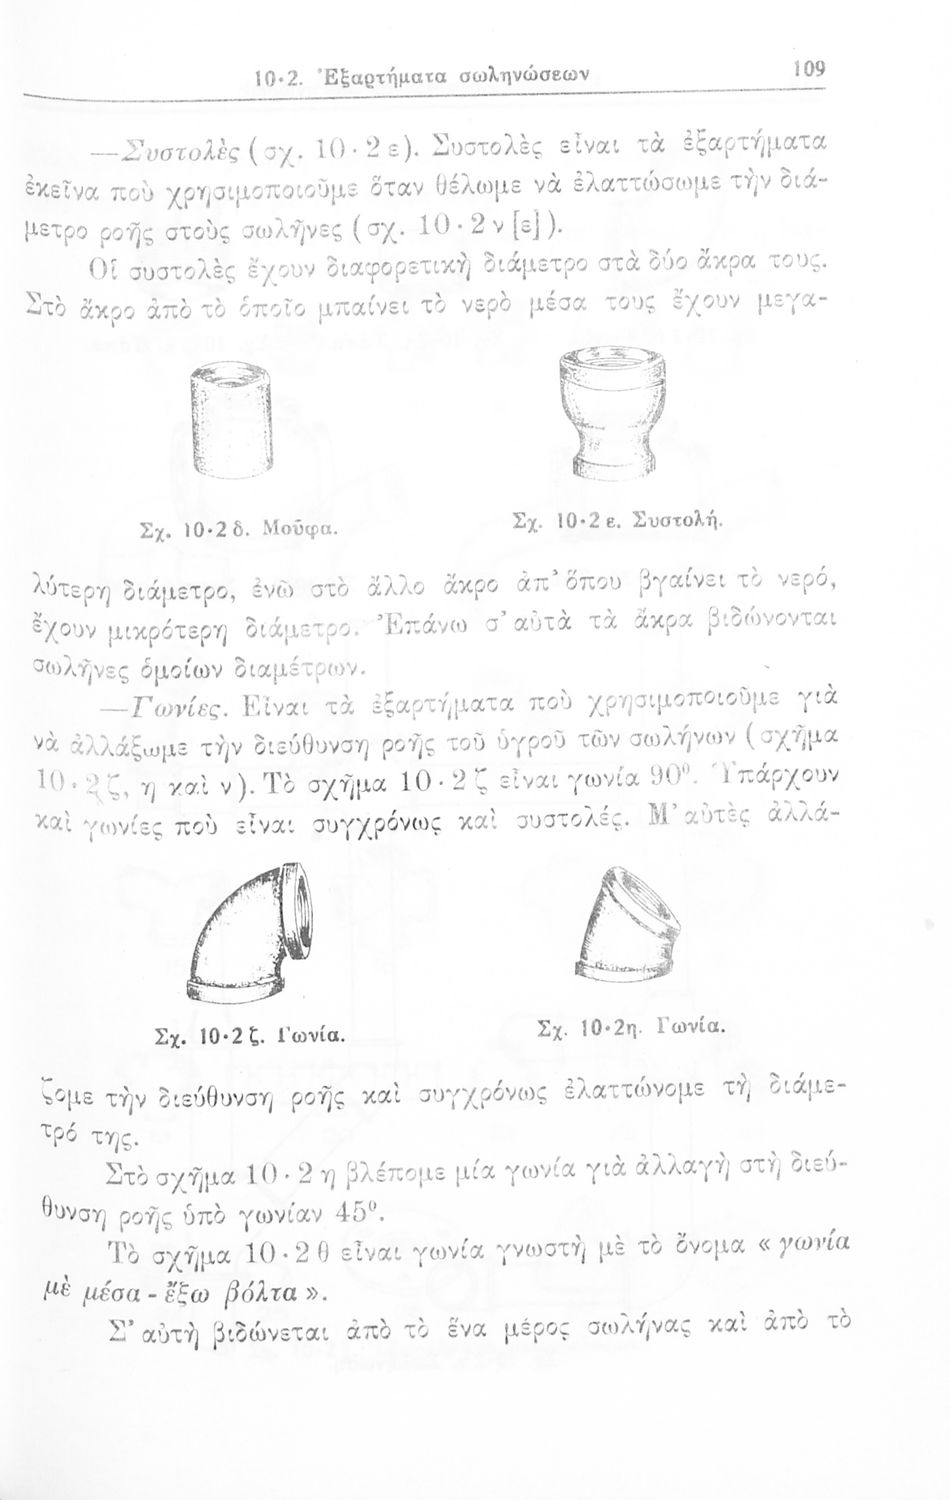 10·2. Ἐξαρτήματα σωληνώσεων
109
—Συστολὲς (σχ. 10·2 ε). Συστολὲς εἶναι τὰ ἐξαρτήματα
ἐκεῖνα ποὺ χρησιμοποιοῦμε ὅταν θέλωμε νὰ ἐλαττώσωμε τὴν διά-
μετρο ροῆς στοὺς σωλῆνες (σχ. 10·2 ν [ε]).
Οἱ συστολὲς ἔχουν διαφορετικὴ διάμετρο στὰ δύο ἄκρα τους.
Στὸ ἄκρο ἀπὸ τὸ ὁποῖο μπαίνει τὸ νερὸ μέσα τους ἔχουν μεγα-
Σχ. 10·2 δ. Μοῦφα.
Σχ. 10·2 ε. Συστολή.
λύτερη διάμετρο, ἐνῶ στὸ ἄλλο ἄκρο ἀπ' ὅπου βγαίνει τὸ νερό,
ἔχουν μικρότερη διάμετρο. Ἐπάνω σ' αὐτὰ τὰ ἄκρα βιδώνονται
σωλῆνες ὁμοίων διαμέτρων.
—Γωνίες. Εἶναι τὰ ἐξαρτήματα ποὺ χρησιμοποιοῦμε γιὰ
νὰ ἀλλάξωμε τὴν διεύθυνση ροῆς τοῦ ὑγροῦ τῶν σωλήνων (σχῆμα
10·2 ζ, η καὶ ν). Τὸ σχῆμα 10·2 ζ εἶναι γωνία 90⁰. Ὑπάρχουν
καὶ γωνίες ποὺ εἶναι συγχρόνως καὶ συστολές. Μ' αὐτὲς ἀλλά-
Σχ. 10·2 ζ. Γωνία.
Σχ. 10·2η. Γωνία.
ζομε τὴν διεύθυνση ροῆς καὶ συγχρόνως ἐλαττώνομε τὴ διάμε-
τρό της.
Στὸ σχῆμα 10·2 η βλέπομε μία γωνία γιὰ ἀλλαγὴ στὴ διεύ-
θυνση ροῆς ὑπὸ γωνίαν 45⁰.
Τὸ σχῆμα 10·2 θ εἶναι γωνία γνωστὴ μὲ τὸ ὄνομα « γωνία
μὲ μέσα - ἔξω βόλτα ».
Σ' αὐτὴ βιδώνεται ἀπὸ τὸ ἕνα μέρος σωλήνας καὶ ἀπὸ τὸ